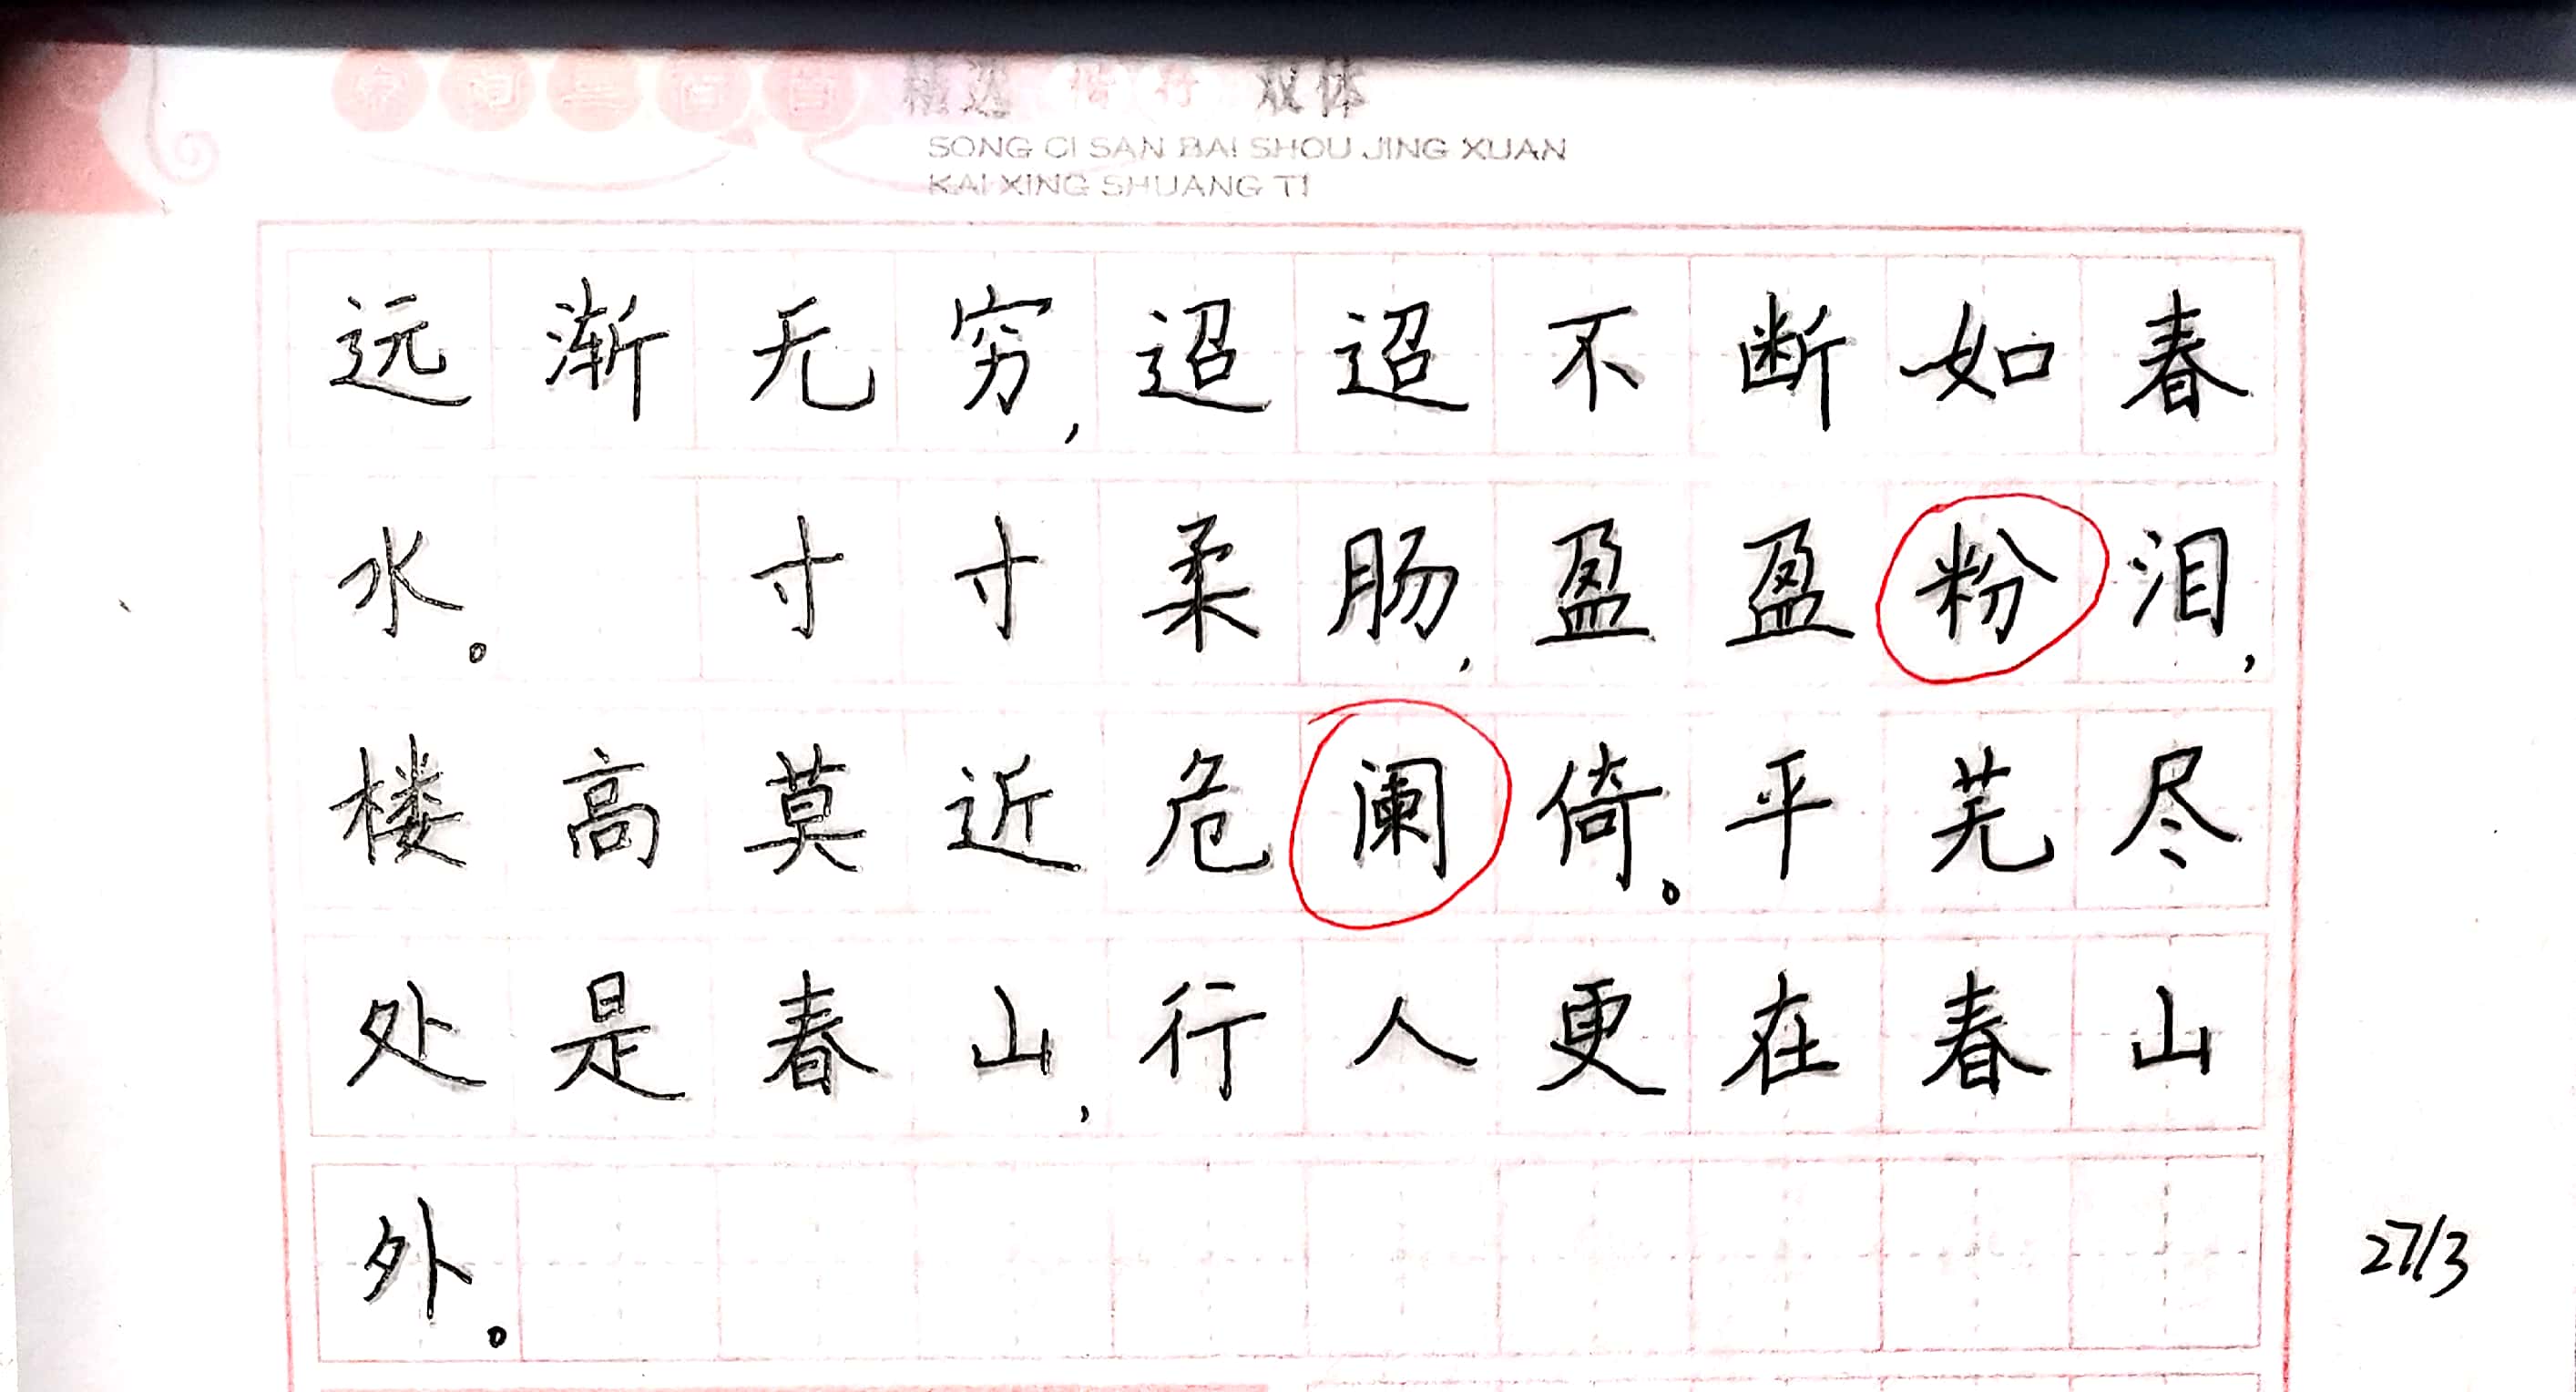 宋词三百首 精选 楷行 双体
SONG CI SAN BAI SHOU JING XUAN
KAI XING SHUANG TI
远渐无穷,迢迢不断如春
水。 寸寸柔肠,盈盈粉泪,
楼高莫近危阑倚。平芜尽
处是春山,行人更在春山
外。
27/3